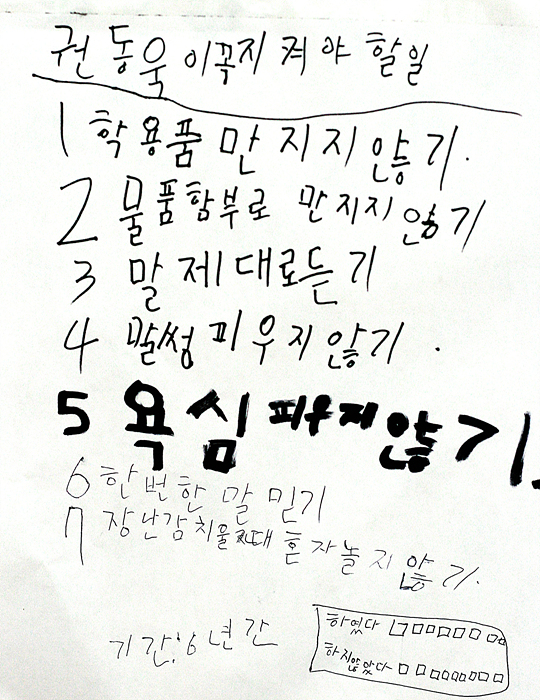 권동욱이꼭지켜야할일
1 학용품만지지않기.
2 물품함부로 만지지않기
3 말제대로듣기
4 말썽피우지않기.
5 욕심피우지않기.
6 한번한말믿기
7 장난감치울때 혼자놀지않기.
기간:6년간
하였다 □□□□□□□□
하지않았다 □□□□□□□□